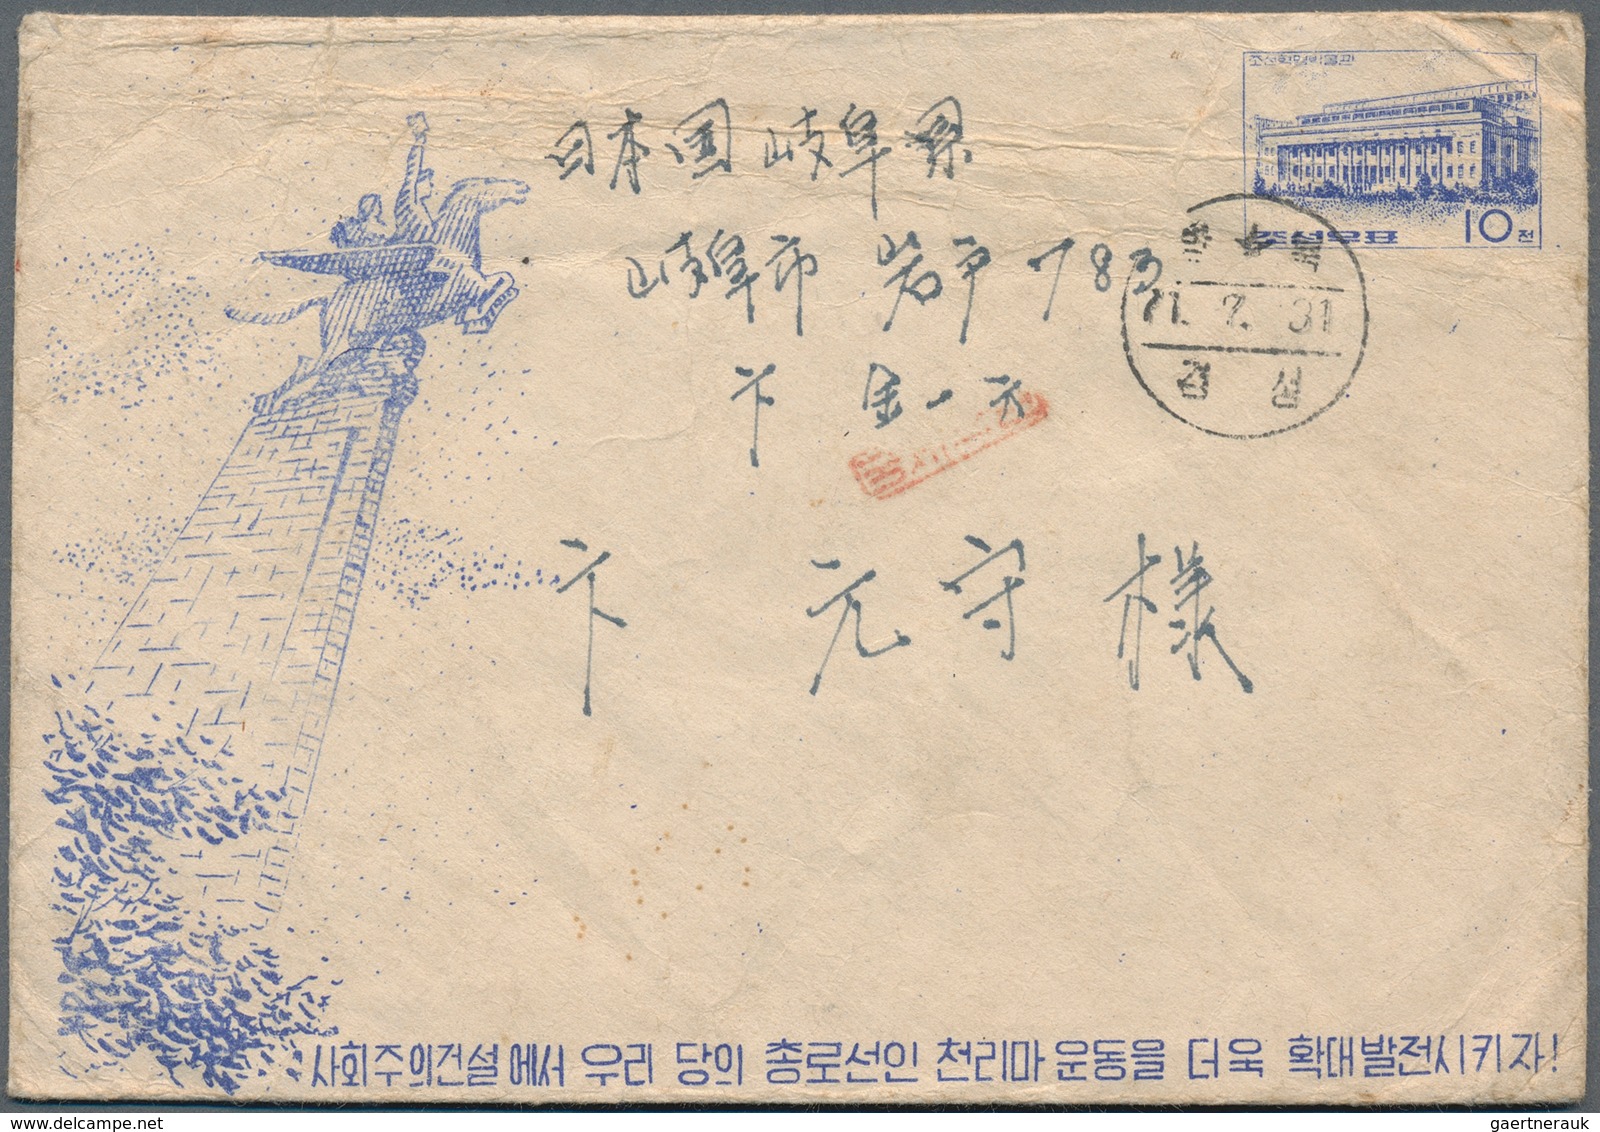 조선혁명박물관
10 전
조선우표
71. 7. 31
日本国 岐阜県
岐阜市 岩戸 783
卞 金一 元
卞 元守 様
사회주의건설에서 우리 당의 총로선인 천리마운동을 더욱 확대발전시키자!
gaertnerauk